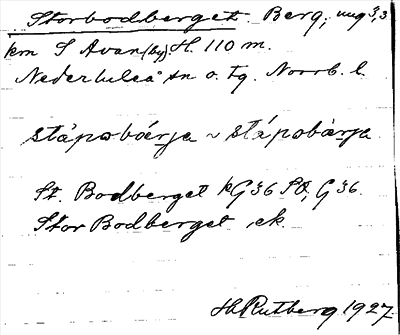 Storbodberget. Berg, ung 3,3
km S Avan (by). H. 110 m.
Nederluleå sn o. tg. Norrb. l.
St. Bodberget kG36 SO, G36.
Stor Bodberget ek.
H. Rutberg 1927